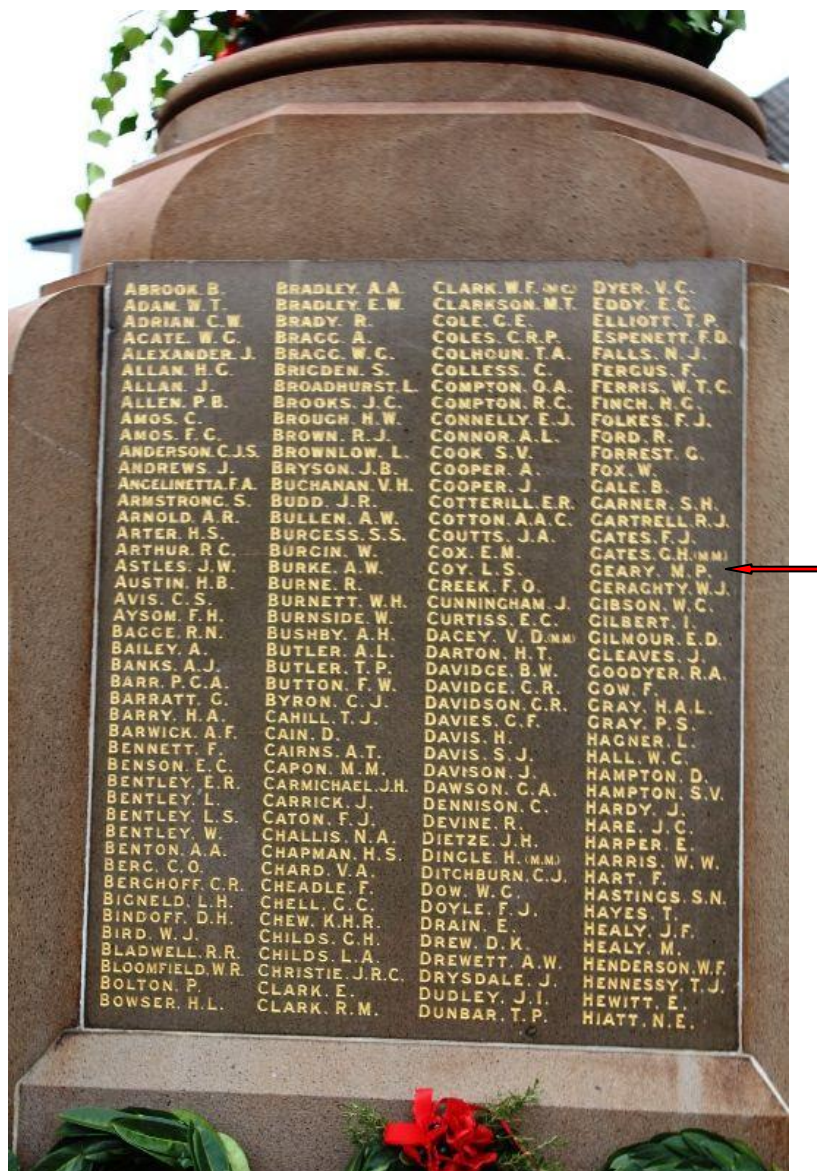 ABROOK. B.
ADAM. W. T.
ADRIAN. C. W.
AGATE. W. G.
ALEXANDER. J.
ALLAN. H. G.
ALLAN. J.
ALLEN. P. B.
AMOS. C.
AMOS. F. C.
ANDERSON. C. J. S.
ANDREWS. J.
ANGELINETTA. F. A.
ARMSTRONG. S.
ARNOLD. A. R.
ARTER. H. S.
ARTHUR. R. C.
ASTLES. J. W.
AUSTIN. H. B.
AVIS. C. S.
AYSOM. F. H.
BAGGE. R. N.
BAILEY. A.
BANKS. A. J.
BARR. P. C. A.
BARRATT. G.
BARRY. H. A.
BARWICK. A. F.
BENNETT. F.
BENSON. E. C.
BENTLEY. E. R.
BENTLEY. L.
BENTLEY. L. S.
BENTLEY. W.
BENTON. A. A.
BERG. C. O.
BERGHOFF. C. R.
BIGNELD. L. H.
BINDOFF. D. H.
BIRD. W. J.
BLADWELL. R. R.
BLOOMFIELD. W. R.
BOLTON. P.
BOWSER. H. L.
BRADLEY. A. A.
BRADLEY. E. W.
BRADY. R.
BRAGG. A.
BRAGG. W. G.
BRIGDEN. S.
BROADHURST. L.
BROOKS. J. C.
BROUGH. H. W.
BROWN. R. J.
BROWNLOW. L.
BRYSON. J. B.
BUCHANAN. V. H.
BUDD. J. R.
BULLEN. A. W.
BURGESS. S. S.
BURGIN. W.
BURKE. A. W.
BURNE. R.
BURNETT. W. H.
BURNSIDE. W.
BUSHBY. A. H.
BUTLER. A. L.
BUTLER. T. P.
BUTTON. F. W.
BYRON. C. J.
CAHILL. T. J.
CAIN. D.
CAIRNS. A. T.
CAPON. M. M.
CARMICHAEL. J. H.
CARRICK. J.
CATON. F. J.
CHALLIS. N. A.
CHAPMAN. H. S.
CHARD. V. A.
CHEADLE. F.
CHELL. C. C.
CHEW. K. H. R.
CHILDS. C. H.
CHILDS. L. A.
CHRISTIE. J. R. C.
CLARK. E.
CLARK. R. M.
CLARK. W. F. (M C)
CLARKSON. M. T.
COLE. G. E.
COLES. C. R. P.
COLHOUN. T. A.
COLLESS. C.
COMPTON. O. A.
COMPTON. R. C.
CONNELLY. E. J.
CONNOR. A. L.
COOK. S. V.
COOPER. A.
COOPER. J.
COTTERILL. E. R.
COTTON. A. A. C.
COUTTS. J. A.
COX. E. M.
COY. L. S.
CREEK. F. O.
CUNNINGHAM. J.
CURTISS. E. C.
DACEY. V. D. (M M)
DARTON. H. T.
DAVIDGE. B. W.
DAVIDGE. C. R.
DAVIDSON. C. R.
DAVIES. C. F.
DAVIS. H.
DAVIS. S. J.
DAVISON. J.
DAWSON. G. A.
DENNISON. C.
DEVINE. R.
DIETZE. J. H.
DINGLE. H. (M.M.)
DITCHBURN. C. J.
DOW. W. G.
DOYLE. F. J.
DRAIN. E.
DREW. D. K.
DREWETT. A. W.
DRYSDALE. J.
DUDLEY. J. I.
DUNBAR. T. P.
DYER. V. C.
EDDY. E. G.
ELLIOTT. T. P.
ESPENETT. F. D.
FALLS. N. J.
FERGUS. F.
FERRIS. W. T. C.
FINCH. H. G.
FOLKES. F. J.
FORD. R.
FORREST. G.
FOX. W.
GALE. B.
GARNER. S. H.
GARTRELL. R. J.
GATES. F. J.
GATES. G. H. (M M)
GEARY. M. P.
GERAGHTY. W. J.
GIBSON. W. C.
GILBERT. I.
GILMOUR. E. D.
GLEAVES. J.
GOODYER. R. A.
GOW. F.
GRAY. H. A. L.
GRAY. P. S.
HAGNER. L.
HALL. W. C.
HAMPTON. D.
HAMPTON. S. V.
HARDY. J.
HARE. J. C.
HARPER. E.
HARRIS. W. W.
HART. F.
HASTINGS. S. N.
HAYES. T.
HEALY. J. F.
HEALY. M.
HENDERSON. W. F.
HENNESSY. T. J.
HEWITT. E.
HIATT. N. E.